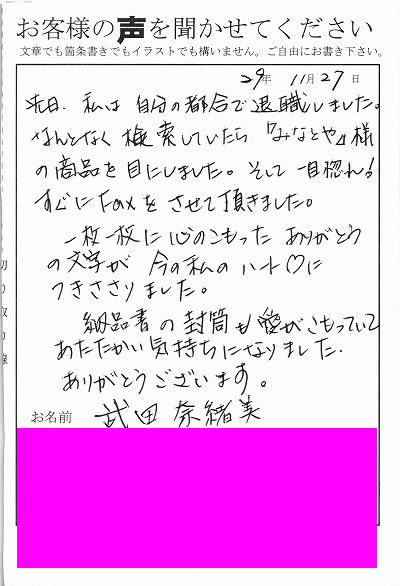 お客様の声を聞かせてください
文章でも箇条書きでもイラストでも構いません。ご自由にお書き下さい。
29年 11月27日
先日、私は自分の都合で退職しました。
なんとなく検索していたら『みなとや』様
の商品を目にしました。そして一目惚れ!
すぐにFaxをさせて頂きました。
一枚一枚に心のこもったありがとう
の文字が今の私のハート♡に
つきささりました。
納品書の封筒も愛がこもっていて
あたたかい気持ちになりました.
ありがとうございます。
お名前 武田奈緒美
切り取り線